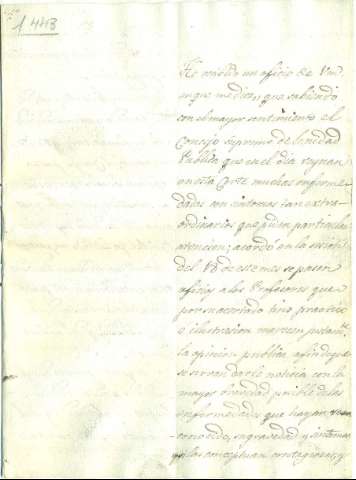 1443
He recibido un oficio de Vm.
en que me dice, que sabiendo
con el mayor sentimiento el
Consejo supremo de Sanidad
Publica que en el dia reynan
en esta Corte muchas enferme-
dades con sintomas tan extra-
ordinarios que piden particular
atencion; acordó en la sesion
del 18 de este mes se pasen
oficios a los Profesores que
por su acertado tino practico
e ilustracion merecen justamte.
la opinion publica, afin de que
se sirvan darle noticia con la
mayor brevedad posible de las
enfermedades que hayan
conocido, su gravedad y sintomas
y si las conceptuan contagiosas, y